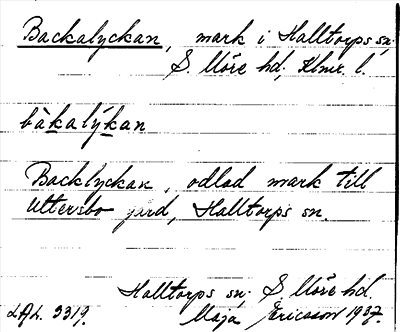 Backalyckan, mark i Halltorps sn,
S. Möre hd, Klmr. l.
bàkalýkan
Backlyckan, odlad mark till
Uttersbo gård, Halltorps sn.
Halltorps sn. S. Möre hd.
LAL. 3319. Maja Ericsson 1937.